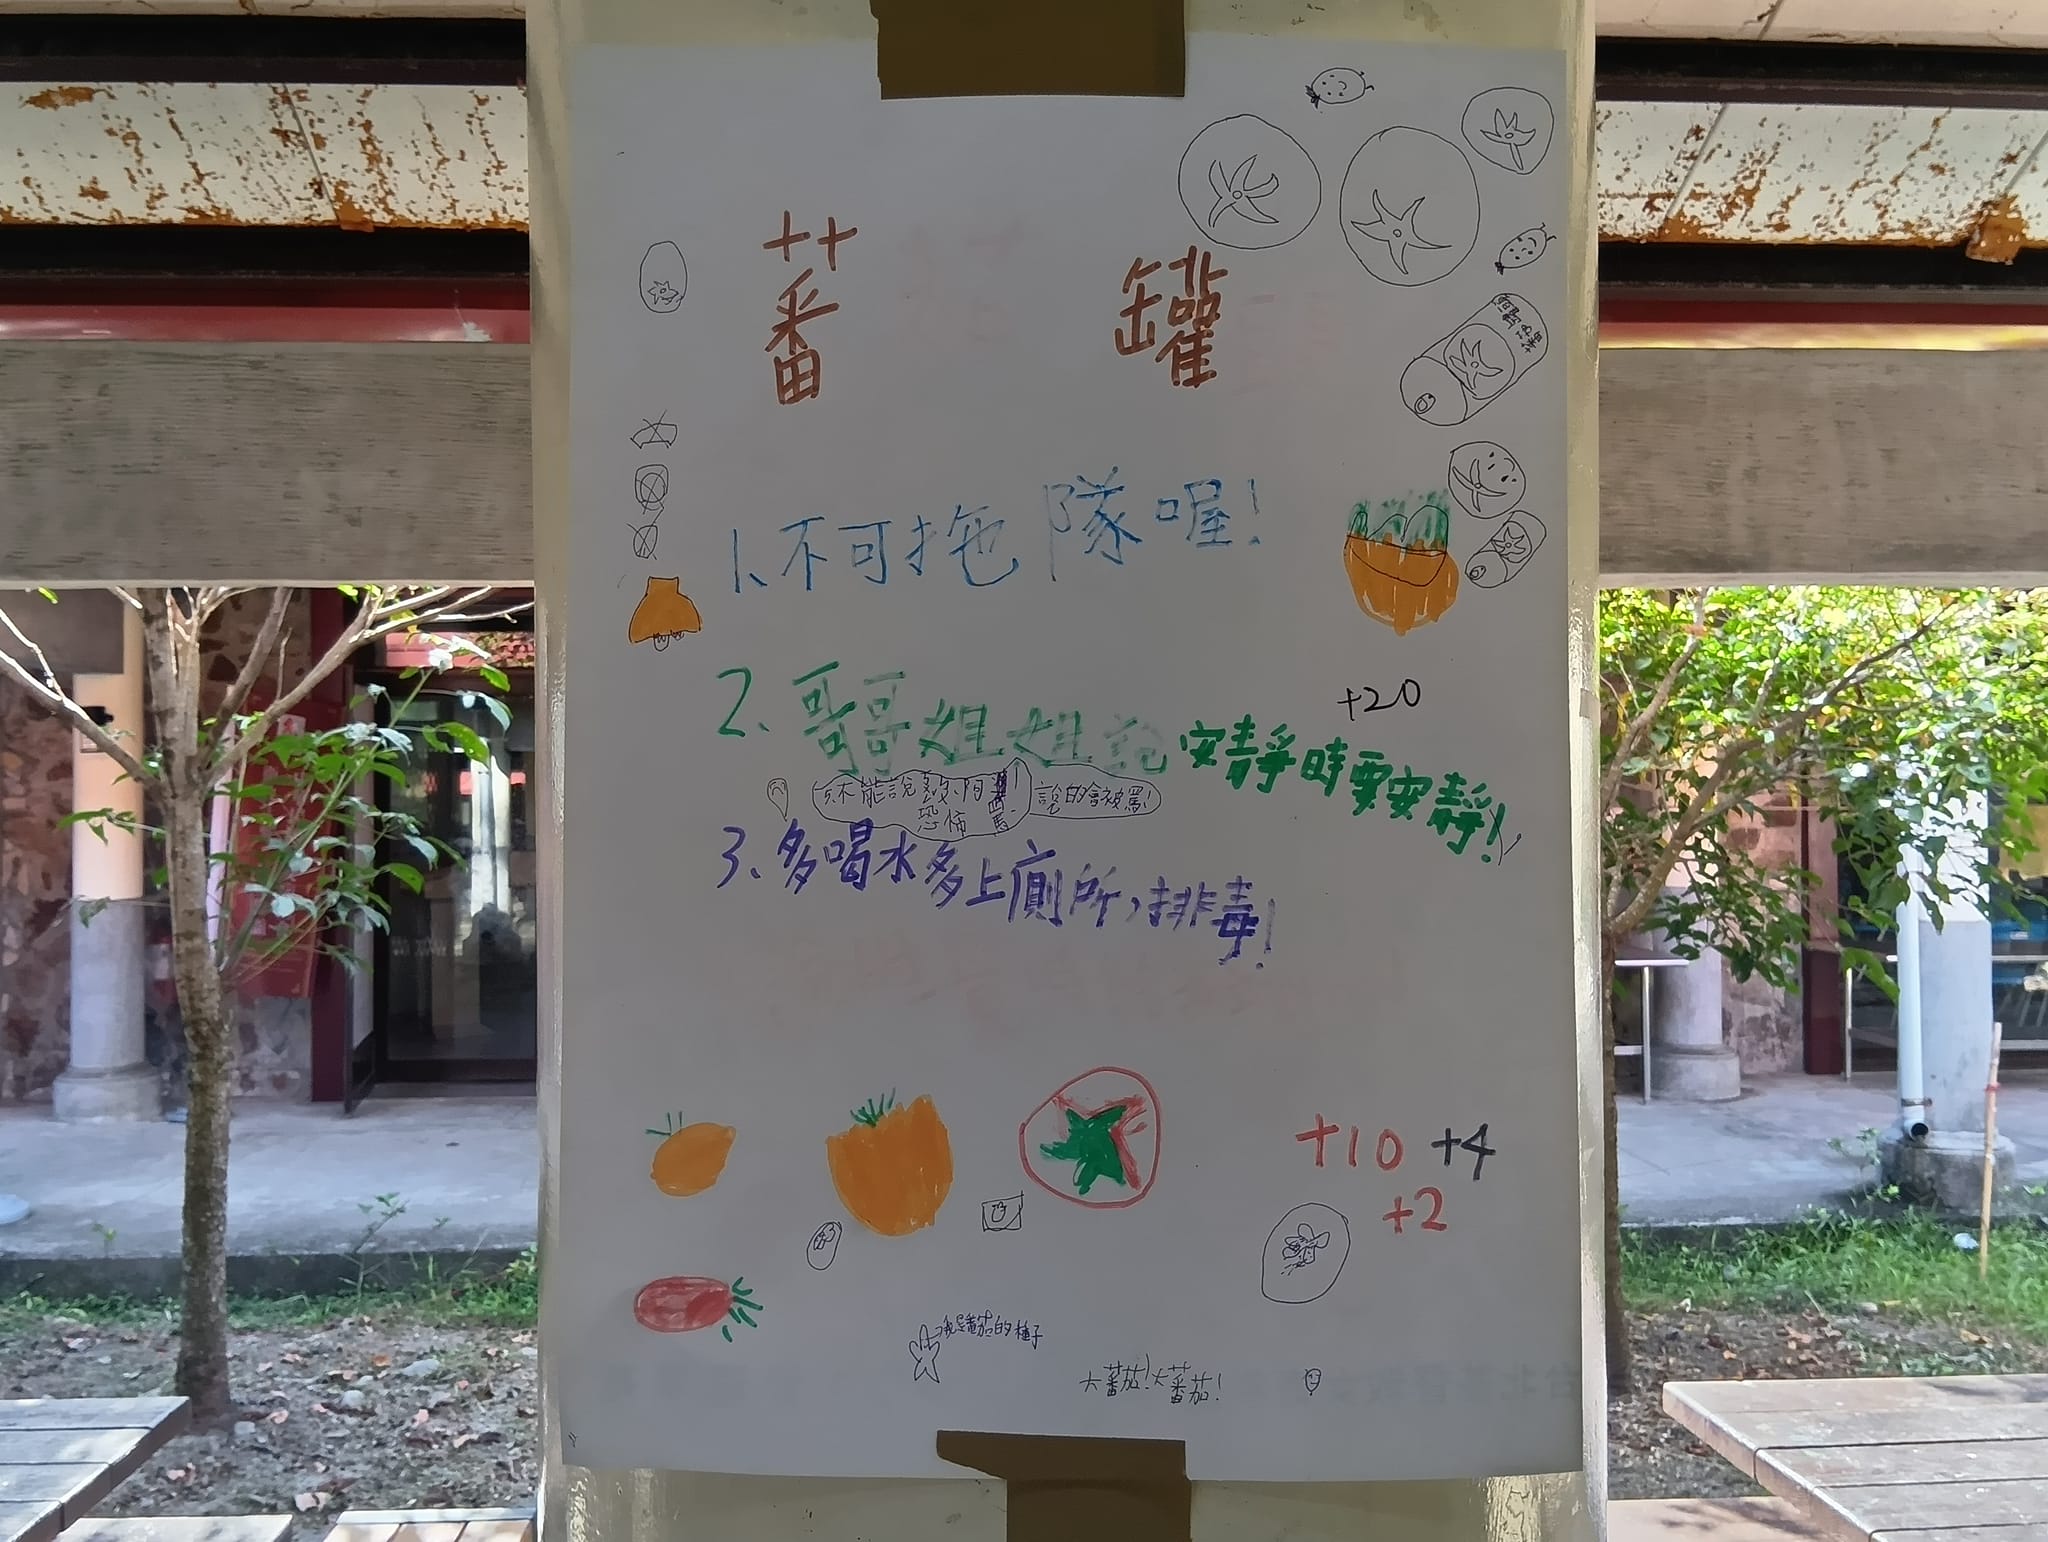 蕃 罐
1、不可拖隊喔!
+20
2、哥哥姐姐說安靜時要安靜!
不能說
恐怖
說的會被罵!
3、多喝水多上廁所,排毒!
+10 +4
+2
我是蕃茄的種子
大蕃茄!大蕃茄!